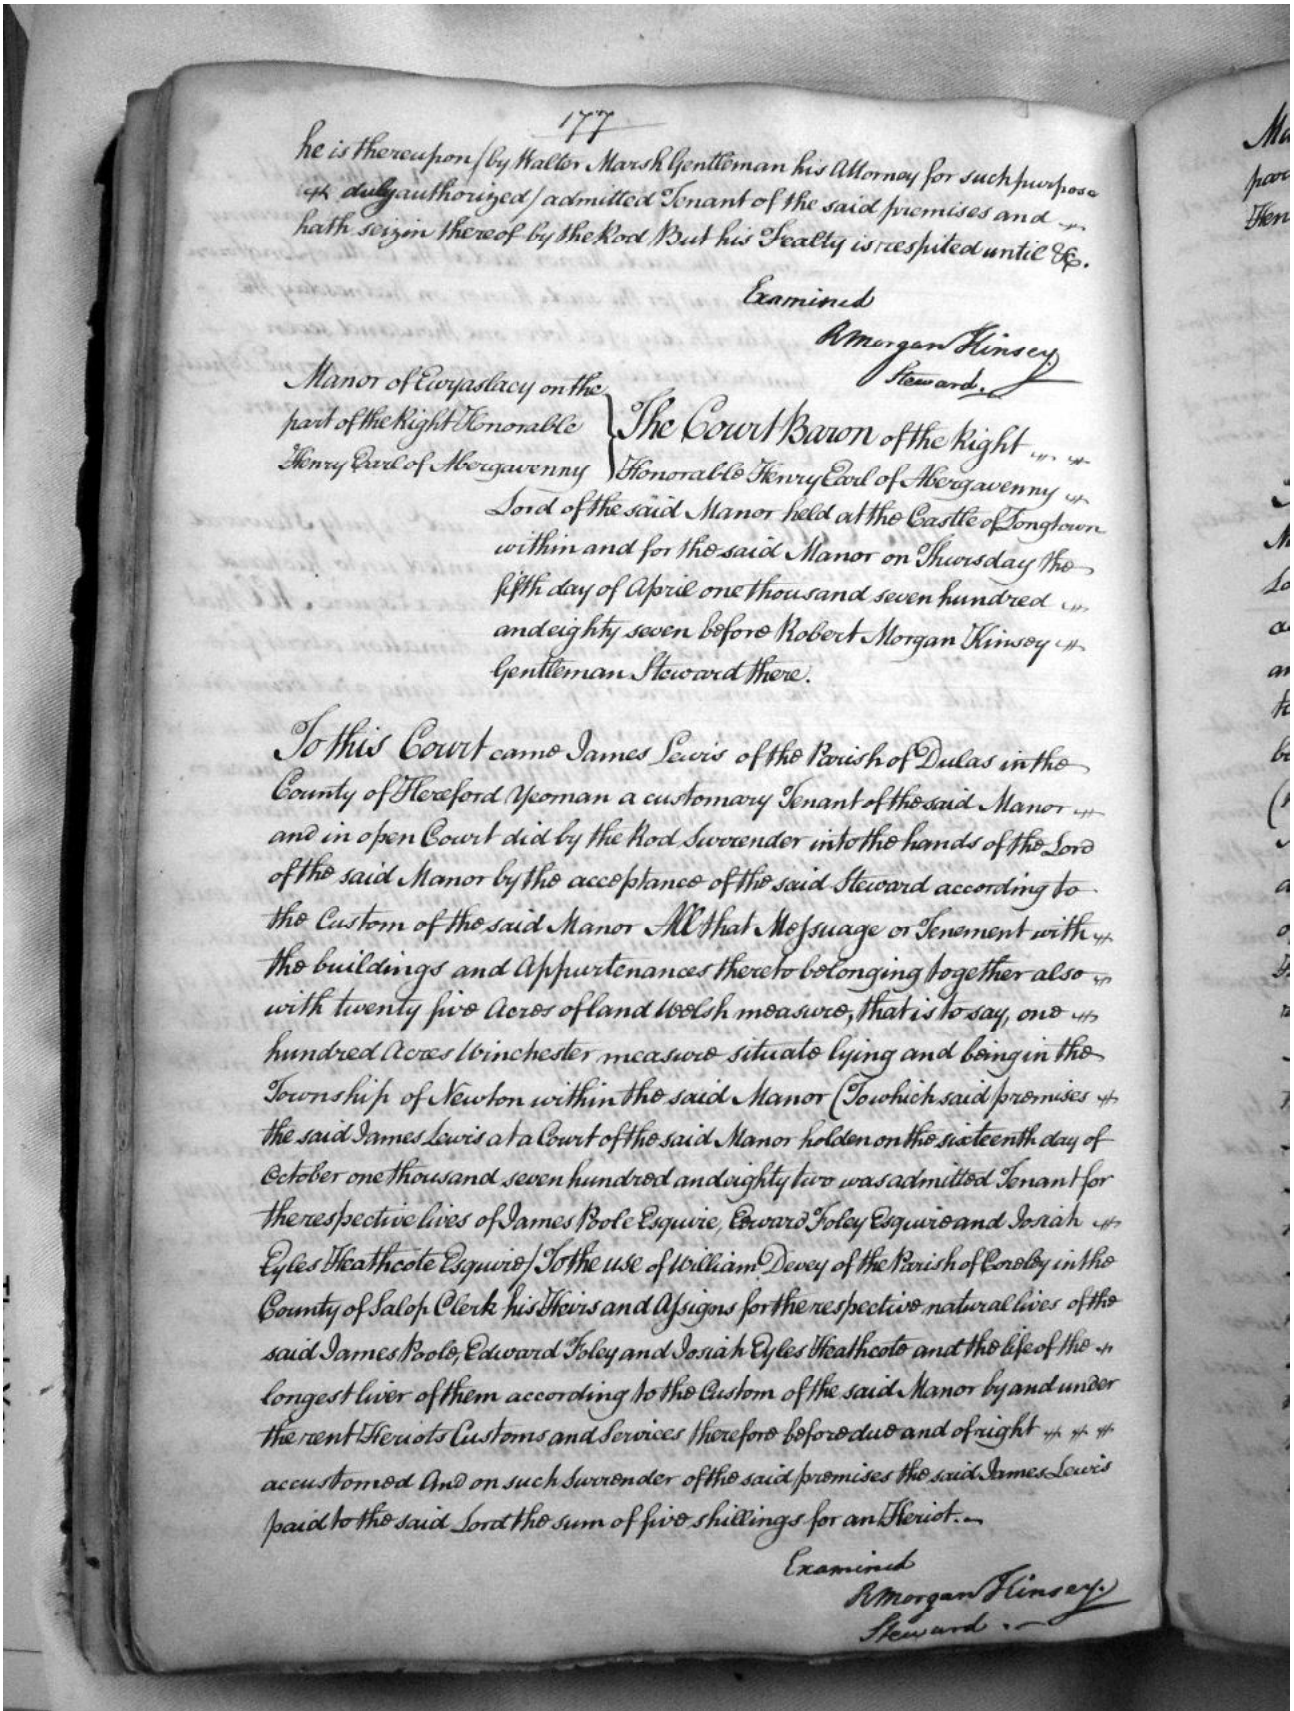 177
he is thereupon (by Walter Marsh Gentleman his Attorney for such purpose
duly authorized) admitted Tenant of the said premises and
hath seizin thereof by the Rod But his Fealty is respited until &c.
Examined
R Morgan Kinsey
Steward.
Manor of Ewyaslacy on the
part of the Right Honorable
Henry Earl of Abergavenny
The Court Baron of the Right
Honorable Henry Earl of Abergavenny
Lord of the said Manor held at the Castle of Longtown
within and for the said Manor on Thursday the
fifth day of April one thousand seven hundred
and eighty seven before Robert Morgan Kinsey
Gentleman Steward there.
To this Court came James Lewis of the Parish of Dulas in the
County of Hereford Yeoman a customary Tenant of the said Manor
and in open Court did by the Rod Surrender into the hands of the Lord
of the said Manor by the acceptance of the said Steward according to
the Custom of the said Manor All that Messuage or Tenement with
the buildings and Appurtenances thereto belonging together also
with twenty five Acres of land Welsh measure, that is to say, one
hundred Acres Winchester measure situate lying and being in the
Township of Newton within the said Manor (To which said premises
the said James Lewis at a Court of the said Manor holden on the sixteenth day of
October one thousand seven hundred and eighty two was admitted Tenant for
the respective lives of James Poole Esquire, Edward Foley Esquire and Josiah
Eyles Heathcote Esquire) To the use of William Devey of the Parish of Coreley in the
County of Salop Clerk his Heirs and Assigns for the respective natural lives of the
said James Poole, Edward Foley and Josiah Eyles Heathcote and the life of the
longest liver of them according to the Custom of the said Manor by and under
the rent Heriots Customs and Services therefore before due and of right
accustomed And on such Surrender of the said premises the said James Lewis
paid to the said Lord the sum of five shillings for an Heriot.
Examined
R Morgan Kinsey.
Steward.